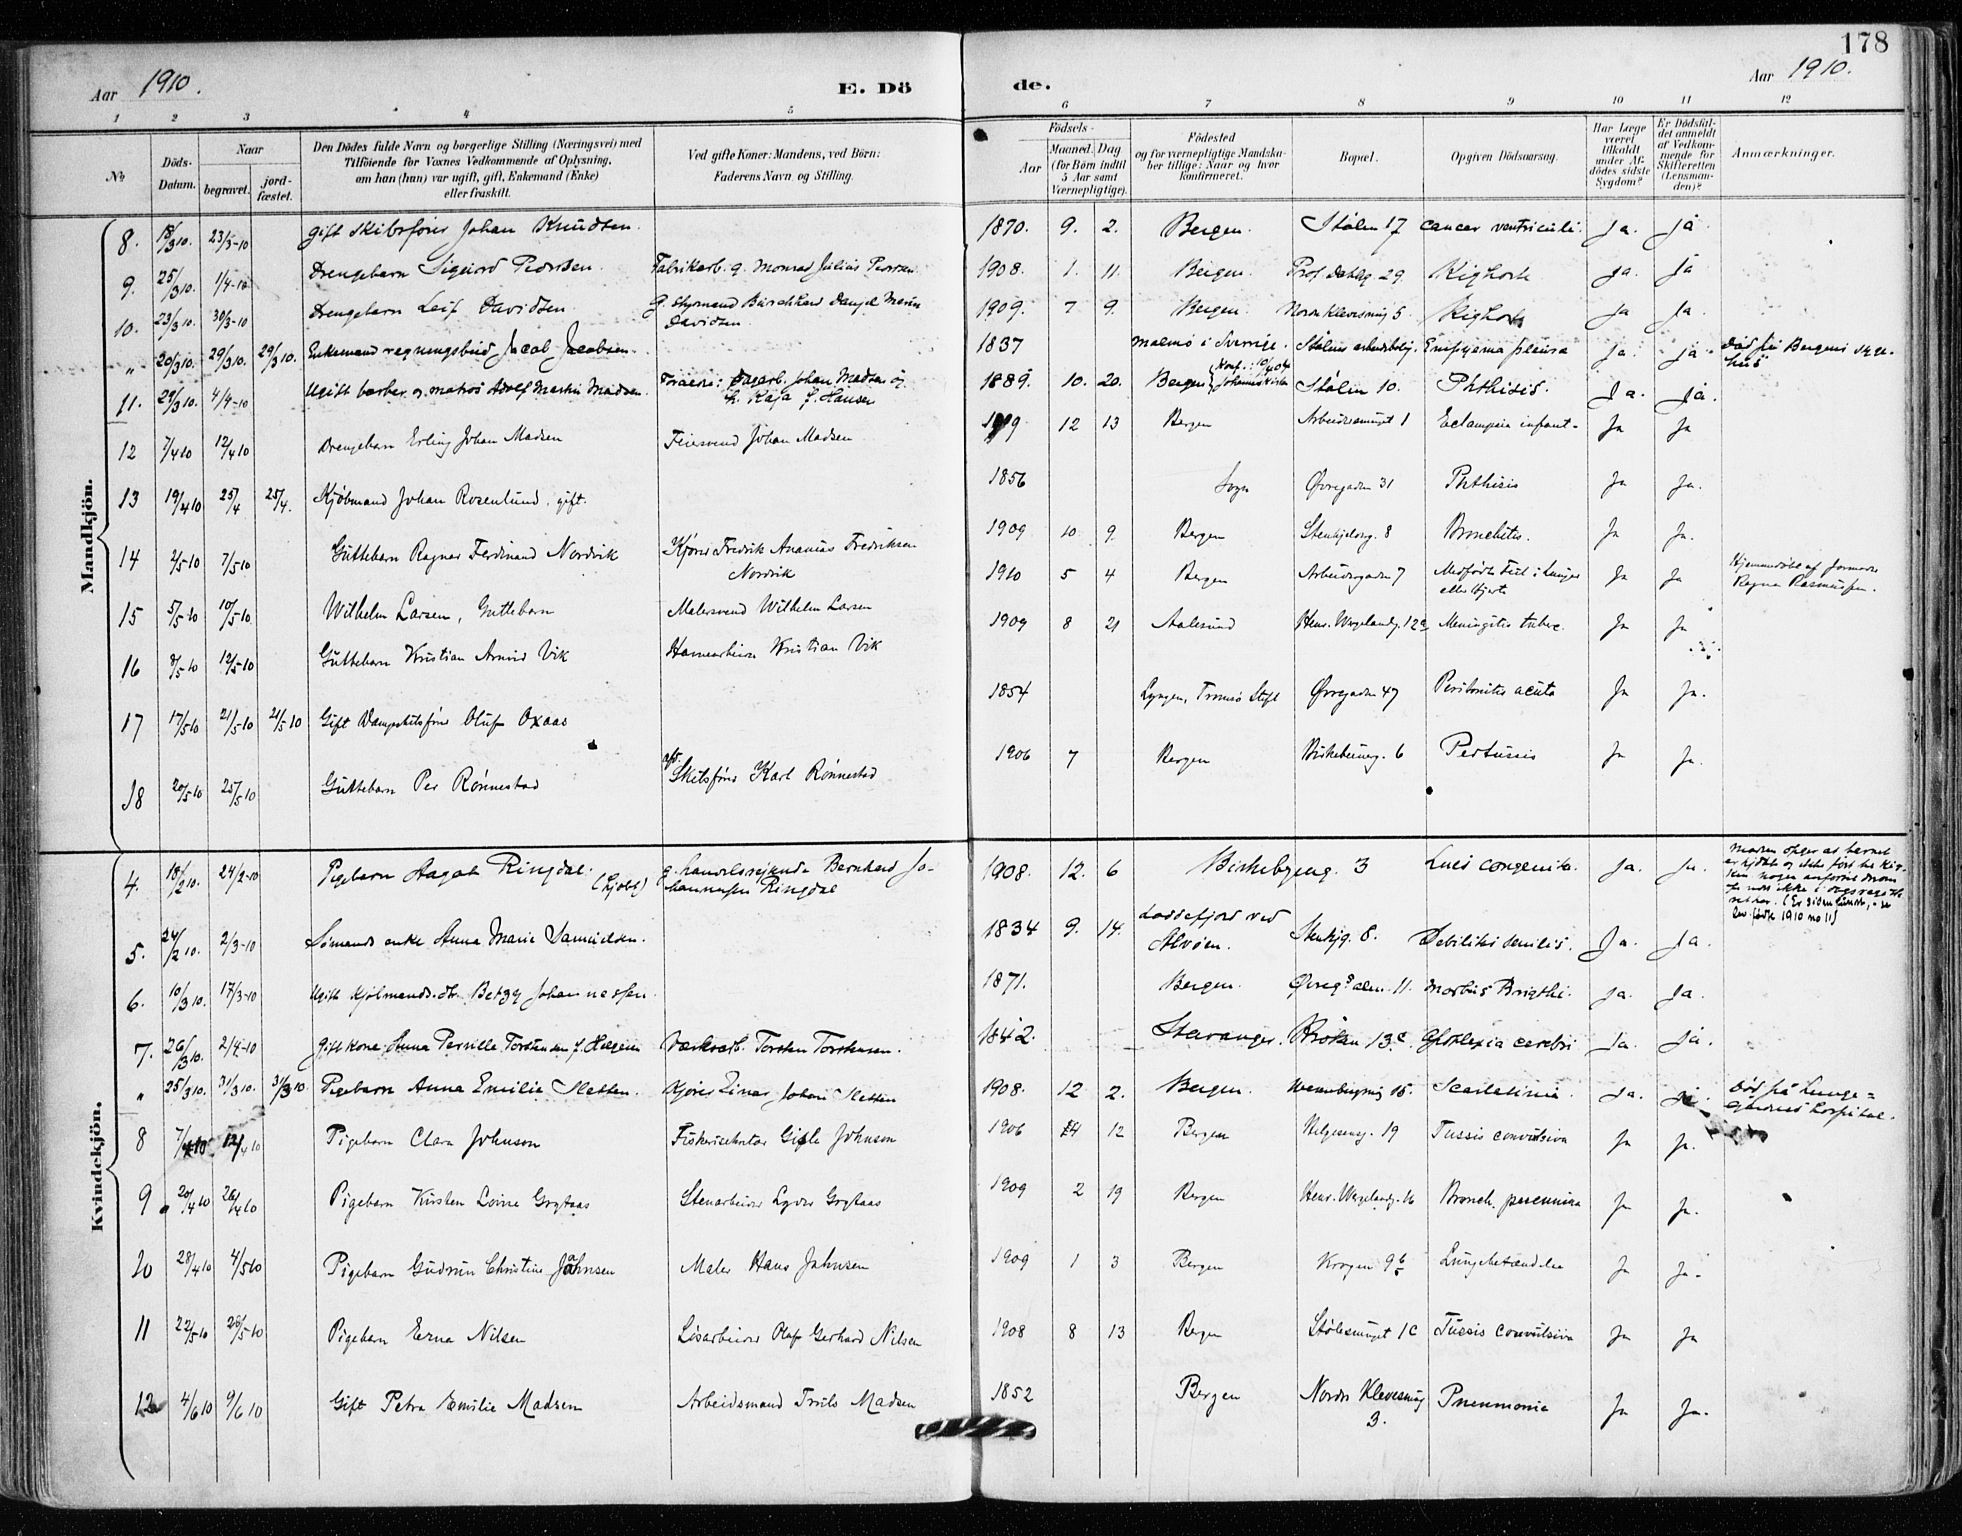 178
Aar 1910.
E. Dö
de.
Aar 1910.
1 2 3 4 5 6 7 8 9 10 11 12
№
Döds-Datum.
Naar
begravet.
jord-fæstet.
Den Dödes fulde Navn og borgerlige Stilling (Næringsvei) med
Tilföiende for Voxnes Vedkommende af Oplysning,
om han (hun) var ugift, gift, Enkemand (Enke)
eller fraskilt.
Ved gifte Koner: Mandens, ved Börn:
Faderens Navn og Stilling.
Födsels-
Aar
Maaned. Dag
(for Börn indtil
5 Aar samt
Værnepligtige).
Födested
og for værnepligtige Mandska-
ber tillige: Naar og hvor
konfirmeret.
Bopæl.
Opgiven Dödsaarsag.
Har Læge
været
tilkaldt
under Af-
dödes sidste
Sygdom?
Er Dödsfal-
det anmeldt
af Vedkom-
mende for
Skifteretten
(Lensman-
den)?
Anmærkninger.
Mandkjön.
8. 18/3 10. 23/3-10 gift Skibsfører Johan Knudsen. 1870. 9. 2. Bergen. Stølen 17 cancer ventriculi. Ja. Ja
9. 25/3 10. 1/4-10 Drengebarn Sigurd Pedersen. Fabrikarb. g. Monrad Julius Pedersen 1908. 1. 11. Bergen. 29. Kighoste Ja. Ja
10. 23/3 10. 30/3-10 Drengebarn Leif Davidsen. Davidsen. 1909. 7 9. Bergen. Nordre Klevesmug 5. Kighoste Ja Ja.
" 20/3 10. 29/3 10. 29/3 10. Enkemand regningsbud Jacob Jacobsen. 1837 Malmø i Sverige. Stølens arbeidsbolig. Empyema pleura Ja. Ja Død på Bergens syge-
hus
11. 29/3 10. 4/4-10 Ugift barber og matros Adolf Martin Madsen. Forældre: Dagarb. Johan Madsen og
h. Kaja f. Hansen 1889. 10. 20. Bergen Stølen 10. Phthisis. Ja. Ja.
12 7/4 10 12/4 10 Drengebarn Erling Johan Madsen Feiersvend Johan Madsen 1909 12 13 Bergen Arbeidersmuget 1 Eclampsia infant. Ja Ja
13 19/4 10 25/4 25/4. Kjøbmand Johan Rosenlund, gift. 1856 Sogn Øvregaden 31 Phthisis Ja Ja.
14 2/5-10 7/5-10 Guttebarn Ragnar Ferdinand Nordvik Kjører Fredrik Ananias Fredriksen
Nordvik 1909 10 9. Bergen 8 Bronchitis. Ja Ja.
15 5/5-10 10/5-10. Wilhelm Larsen, Guttebarn Malersvend Wilhelm Larsen 1910 5 4 Bergen Arbeidergaden 7 Medfødt Feil i Lunger
eller Hjerte Ja Ja Hjemmedøbt af Jormoder
Ragna Rasmussen.
16 8/5-10 12/5-10 Guttebarn Kristian Arnvid Vik Havnearbeider Kristian Vik 1909 8 21 Aalesund Henr. Wergelandsg. 12a Meningitis tuberc. Ja Ja
17 17/5 10 21/5-10 21/5-10 Gift Dampskibsfører Oluf Oxaas 1854 Lyngen, Tromsø Stift Øvregaden 47 Peritonitis acuta Ja Ja.
18 20/5 10 25/5 10 Guttebarn Per Rønnestad Skibsfører Karl Rønnestad 1906 7 Bergen Birkebeinerg. 6 Pertussis Ja Ja.
Kvindekjön.
4. 18/2 10. 24/2-10 Pigebarn Aagot Ringdal. g. handelsreisende Bernhard Jo-
hannessen Ringdal 1908. 12. 6 3 Lues congenita. Ja. Ja.
5. 24/2 10. 2/3-10 Sømands enke Anna Marie Samuelsen. 1834 9. 14. Loddefjord ved
Alvøen. Stenkjg. 8. Debilitas senilis. Ja. Ja.
6. 10/3 10. 17/3-10 Ugift Kjøbmands dtr. Betzy Johannessen. 1871. Bergen. Øvreg alm. 11. Morbus Brigthi. Ja. Ja.
7. 26/3 10. 2/4-10 Gift Kone Anna Pernille Torstensen f. Helgesen Værksarb. Torsten Torstensen. 1842. Stavanger. Kroken 13c. Apoplexia cerebri Ja. Ja.
" 25/3 10. 31/3 10. 31/3 10. Pigebarn Anna Emilie Sletten. Kjører Einar Johan Sletten 1908. 12 2. Bergen. 15. Scarlatina. Ja. Ja. Død på Lunge-
gaardens hospital.
8 7/4 10 12/4 10 Pigebarn Clara Johnson Fiskerisekretær Gisle Johnson 1906 4 12 Bergen Helgesensg. 19 Tussis convulsiva Ja Ja.
9 20/4 10 26/4 10 Pigebarn Kirsten Lovise Grytaas Stenarbeider Lyder Grytaas 1909 2 19 Bergen Henr. Wergelandsg. 16 Bronch. pneumonia Ja Ja.
10 28/4 10 4/5 10 Pigebarn Gudrun Christine Jahnsen Maler Hans Jahnsen 1909 1 3 Bergen Krogen 9b Lungebetændelse Ja Ja.
11 22/5 10 28/5 10 Pigebarn Erna Nilsen Løsarbeider Olaf Gerhard Nilsen 1908 8 13 Bergen Stølesmuget 1c Tussis convulsiva Ja Ja
12 4/6 10 9/6 10 Gift Petra Emilie Madsen Arbeidsmand Truls Madsen 1852 Bergen Nordre Klevesmug
3. Pneumonia Ja Ja.